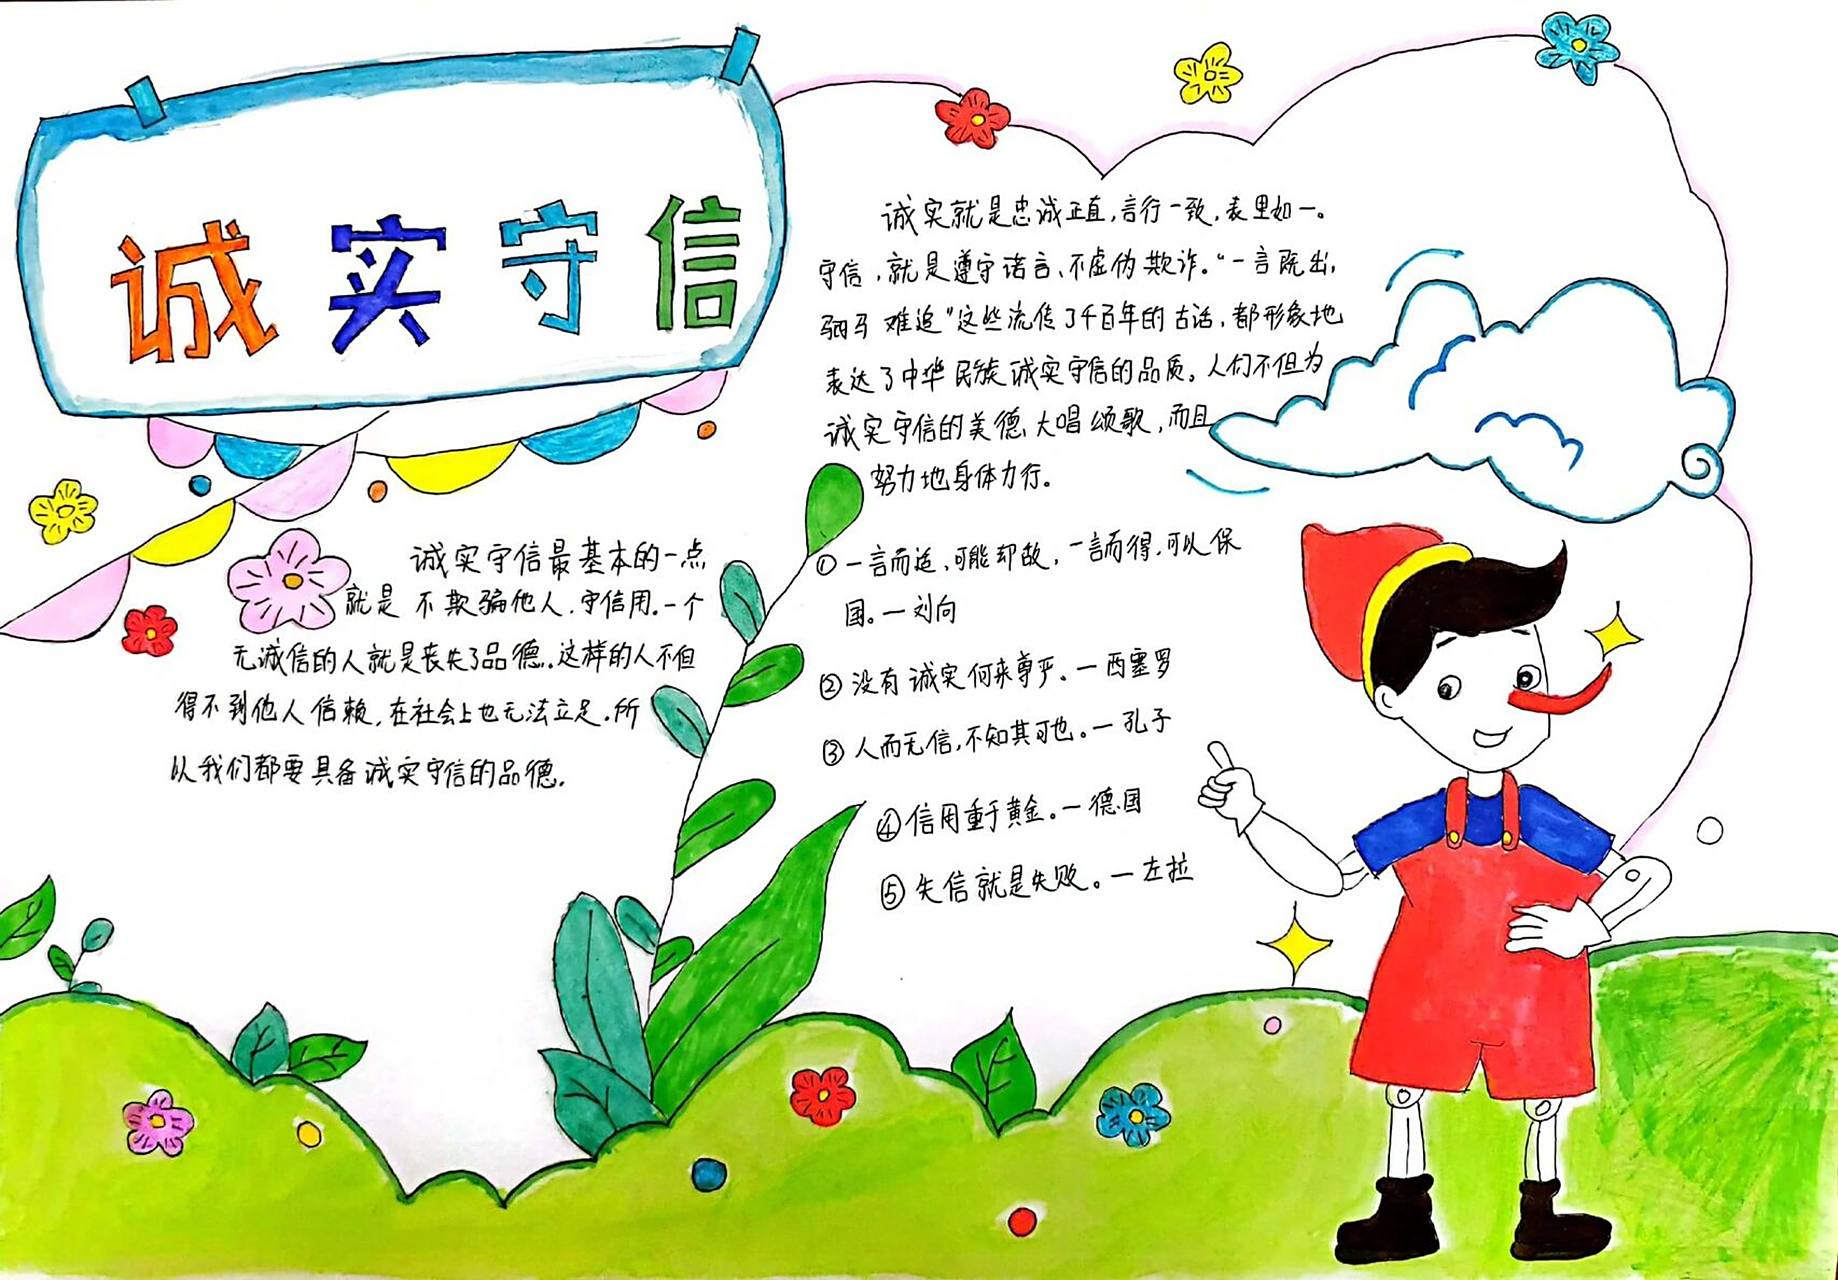 诚实守信
诚实守信最基本的一点
就是不欺骗他人.守信用.一个
无诚信的人就是丧失了品德.这样的人不但
得不到他人信赖,在社会上也无法立足.所
以我们都要具备诚实守信的品德.
诚实就是忠诚正直,言行一致,表里如一。
守信,就是遵守诺言、不虚伪欺诈。“一言既出,
驷马难追”这些流传了千百年的古话,都形象地
表达了中华民族诚实守信的品质。人们不但为
诚实守信的美德大唱颂歌,而且
努力地身体力行。
① 一言而适,可能却敌,一言而得,可以保
国。一刘向
② 没有诚实何来尊严。一西塞罗
③ 人而无信,不知其可也。一孔子
④ 信用重于黄金。一德国
⑤ 失信就是失败。一左拉